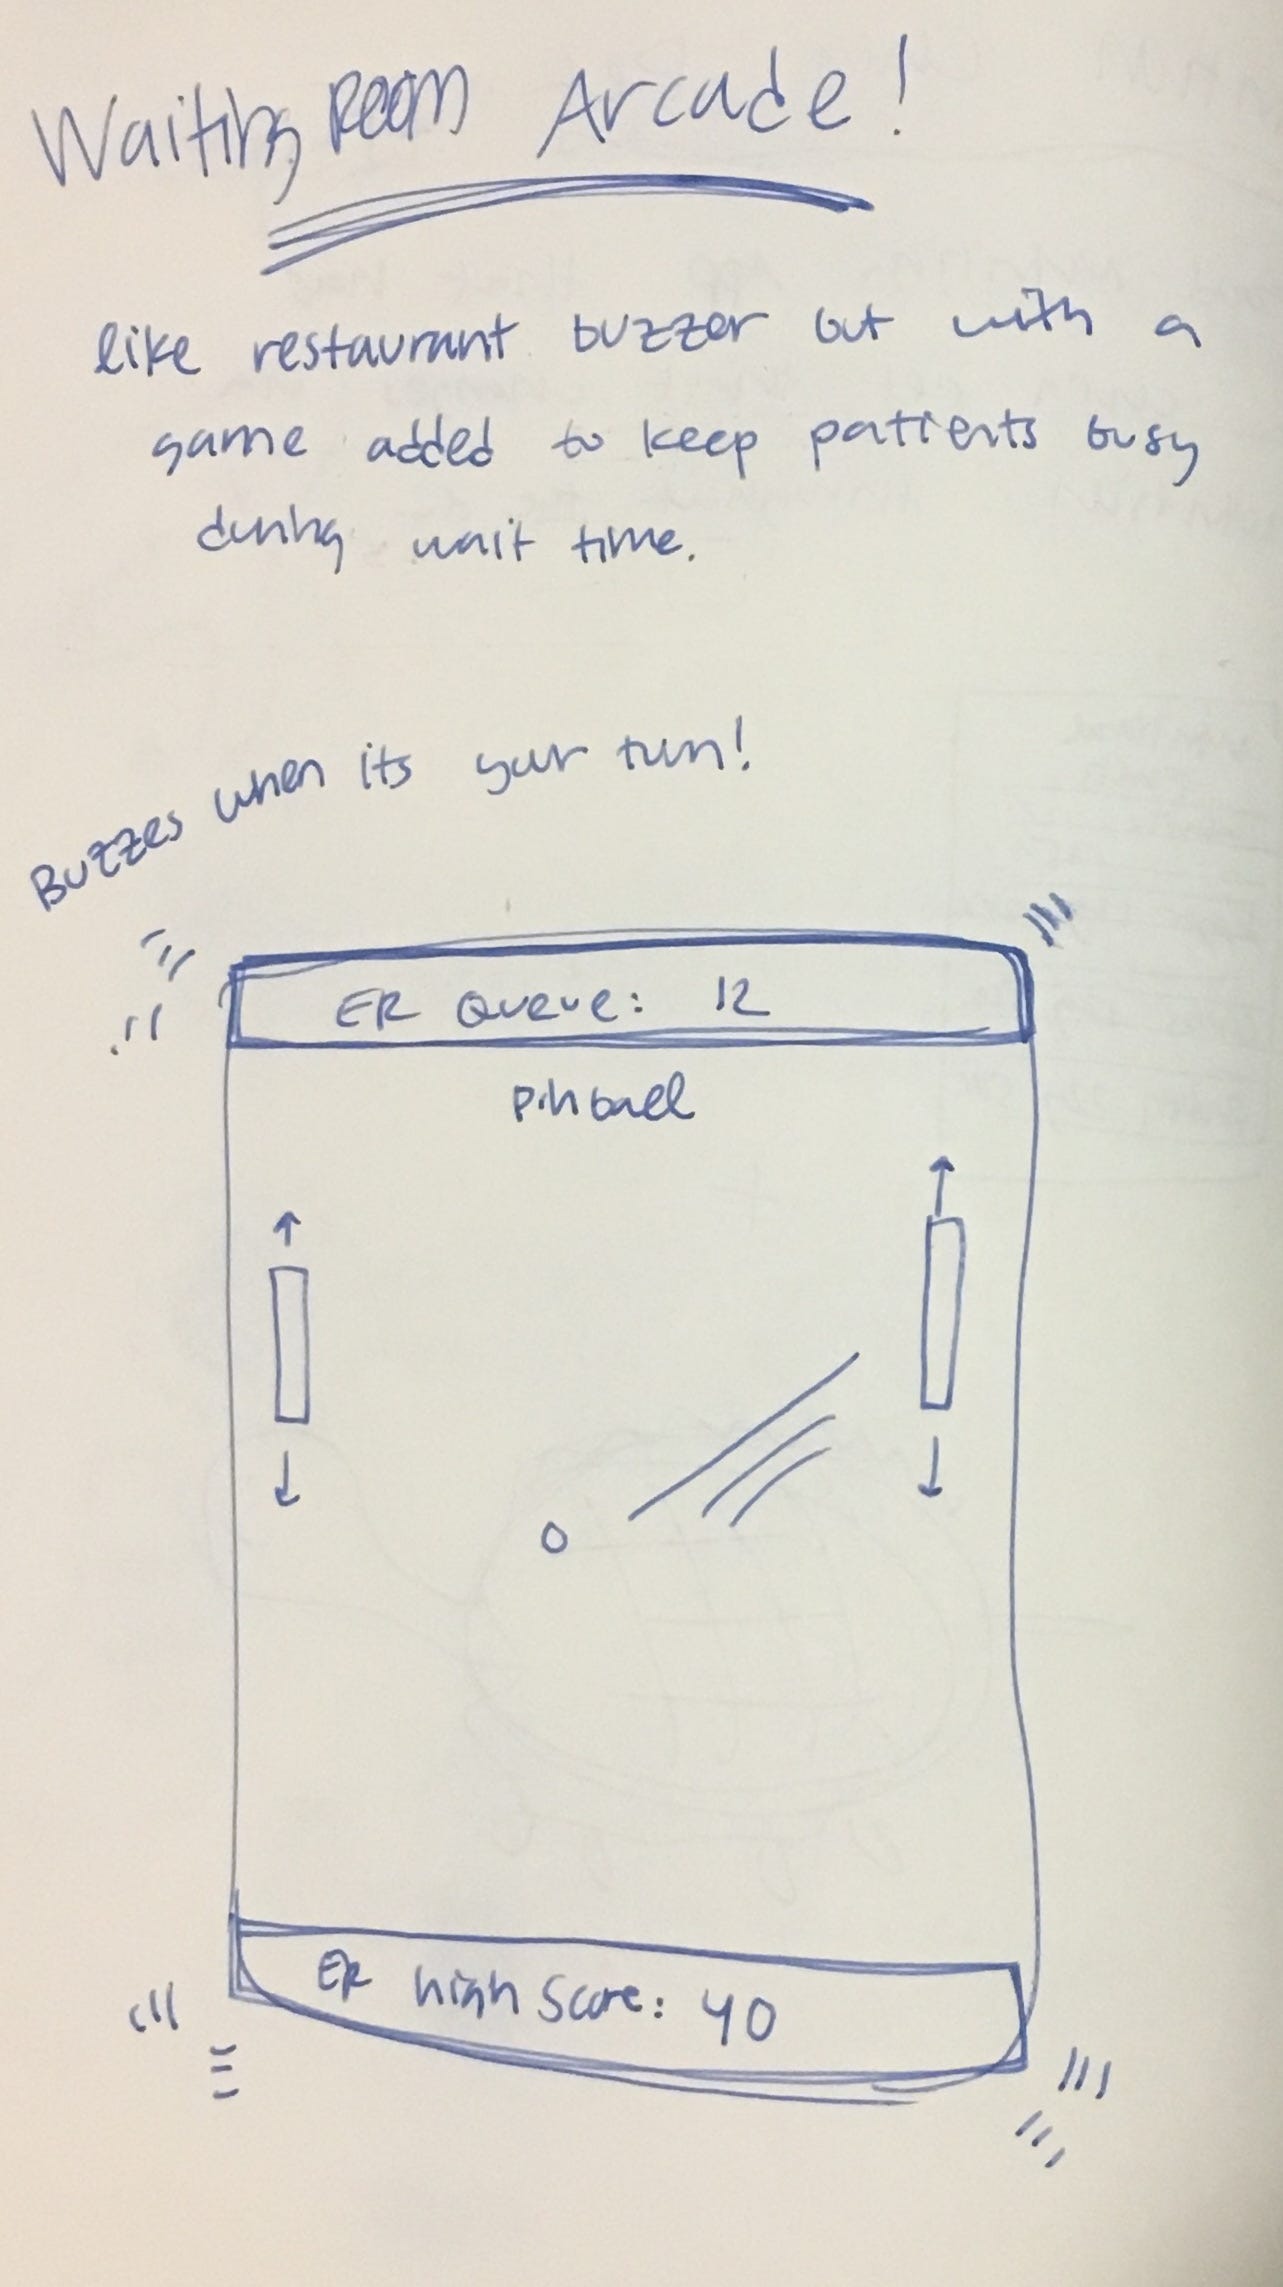 Waiting Room Arcade!
like restaurant buzzer but with a
game added to keep patients busy
during wait time.
Buzzes when its your turn!
ER Queue: 12
Pinball
ER high Score: 40